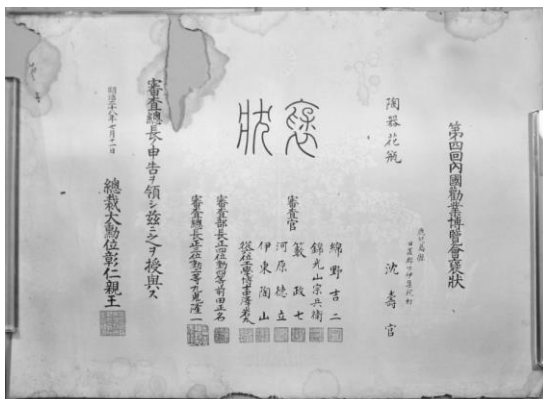 第四回內國勸業博覽會褒狀
鹿兒島縣
日置郡下伊集院村
沈壽官
陶器花瓶
褒狀
審査官
綿野吉二
錦光山宗兵衞
籔政七
河原德立
伊東陶山
審査部長正四位勳四等前田正名
審査總長正三位勳二等九鬼隆一
審査總長ノ申告ヲ領シ玆ニ之ヲ授與ス
明治二十八年七月十一日
總裁大勳位彰仁親王